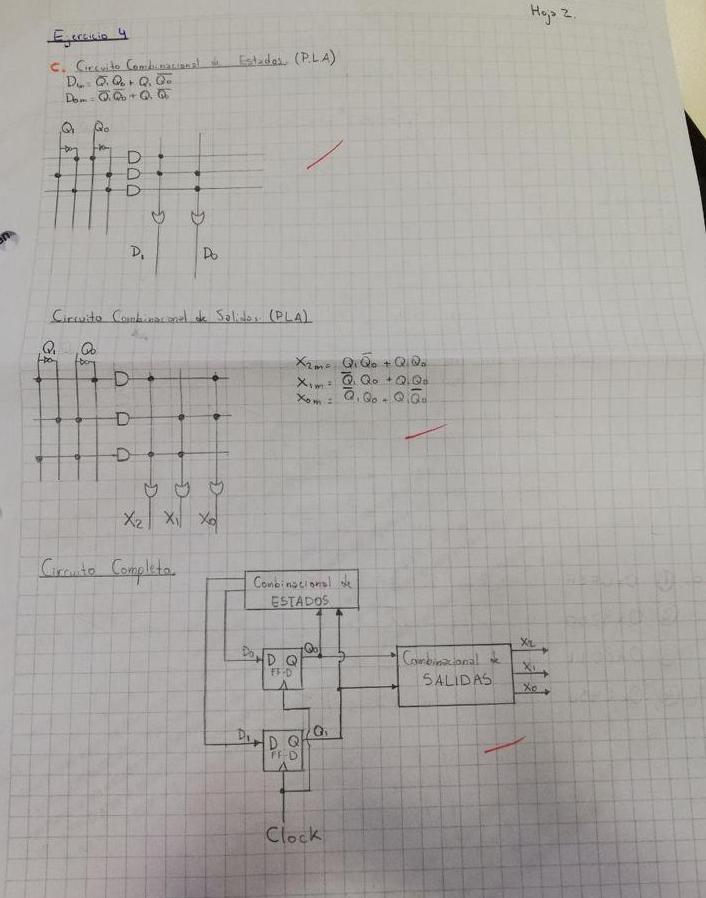 Hoja 2.
Ejercicio 4
C. Circuito Combinacional de Estados (PLA)
D₁ₘ = Q̅₁Q₀ + Q₁Q̅₀
D₀ₘ = Q̅₁Q̅₀ + Q₁Q̅₀
Q₁ Q₀
D₁ D₀
Circuito Combinacional de Salidas (PLA)
Q₁ Q₀
X₂ₘ = Q₁Q̅₀ + Q₁Q₀
X₁ₘ = Q̅₁Q₀ + Q₁Q₀
X₀ₘ = Q̅₁Q₀ + Q₁Q̅₀
X₂ X₁ X₀
Circuito Completo
Combinacional de
ESTADOS
D₀ D Q Q₀
FF-D
Combinacional de
SALIDAS
X₂
X₁
X₀
D₁ D Q Q₁
FF-D
Clock